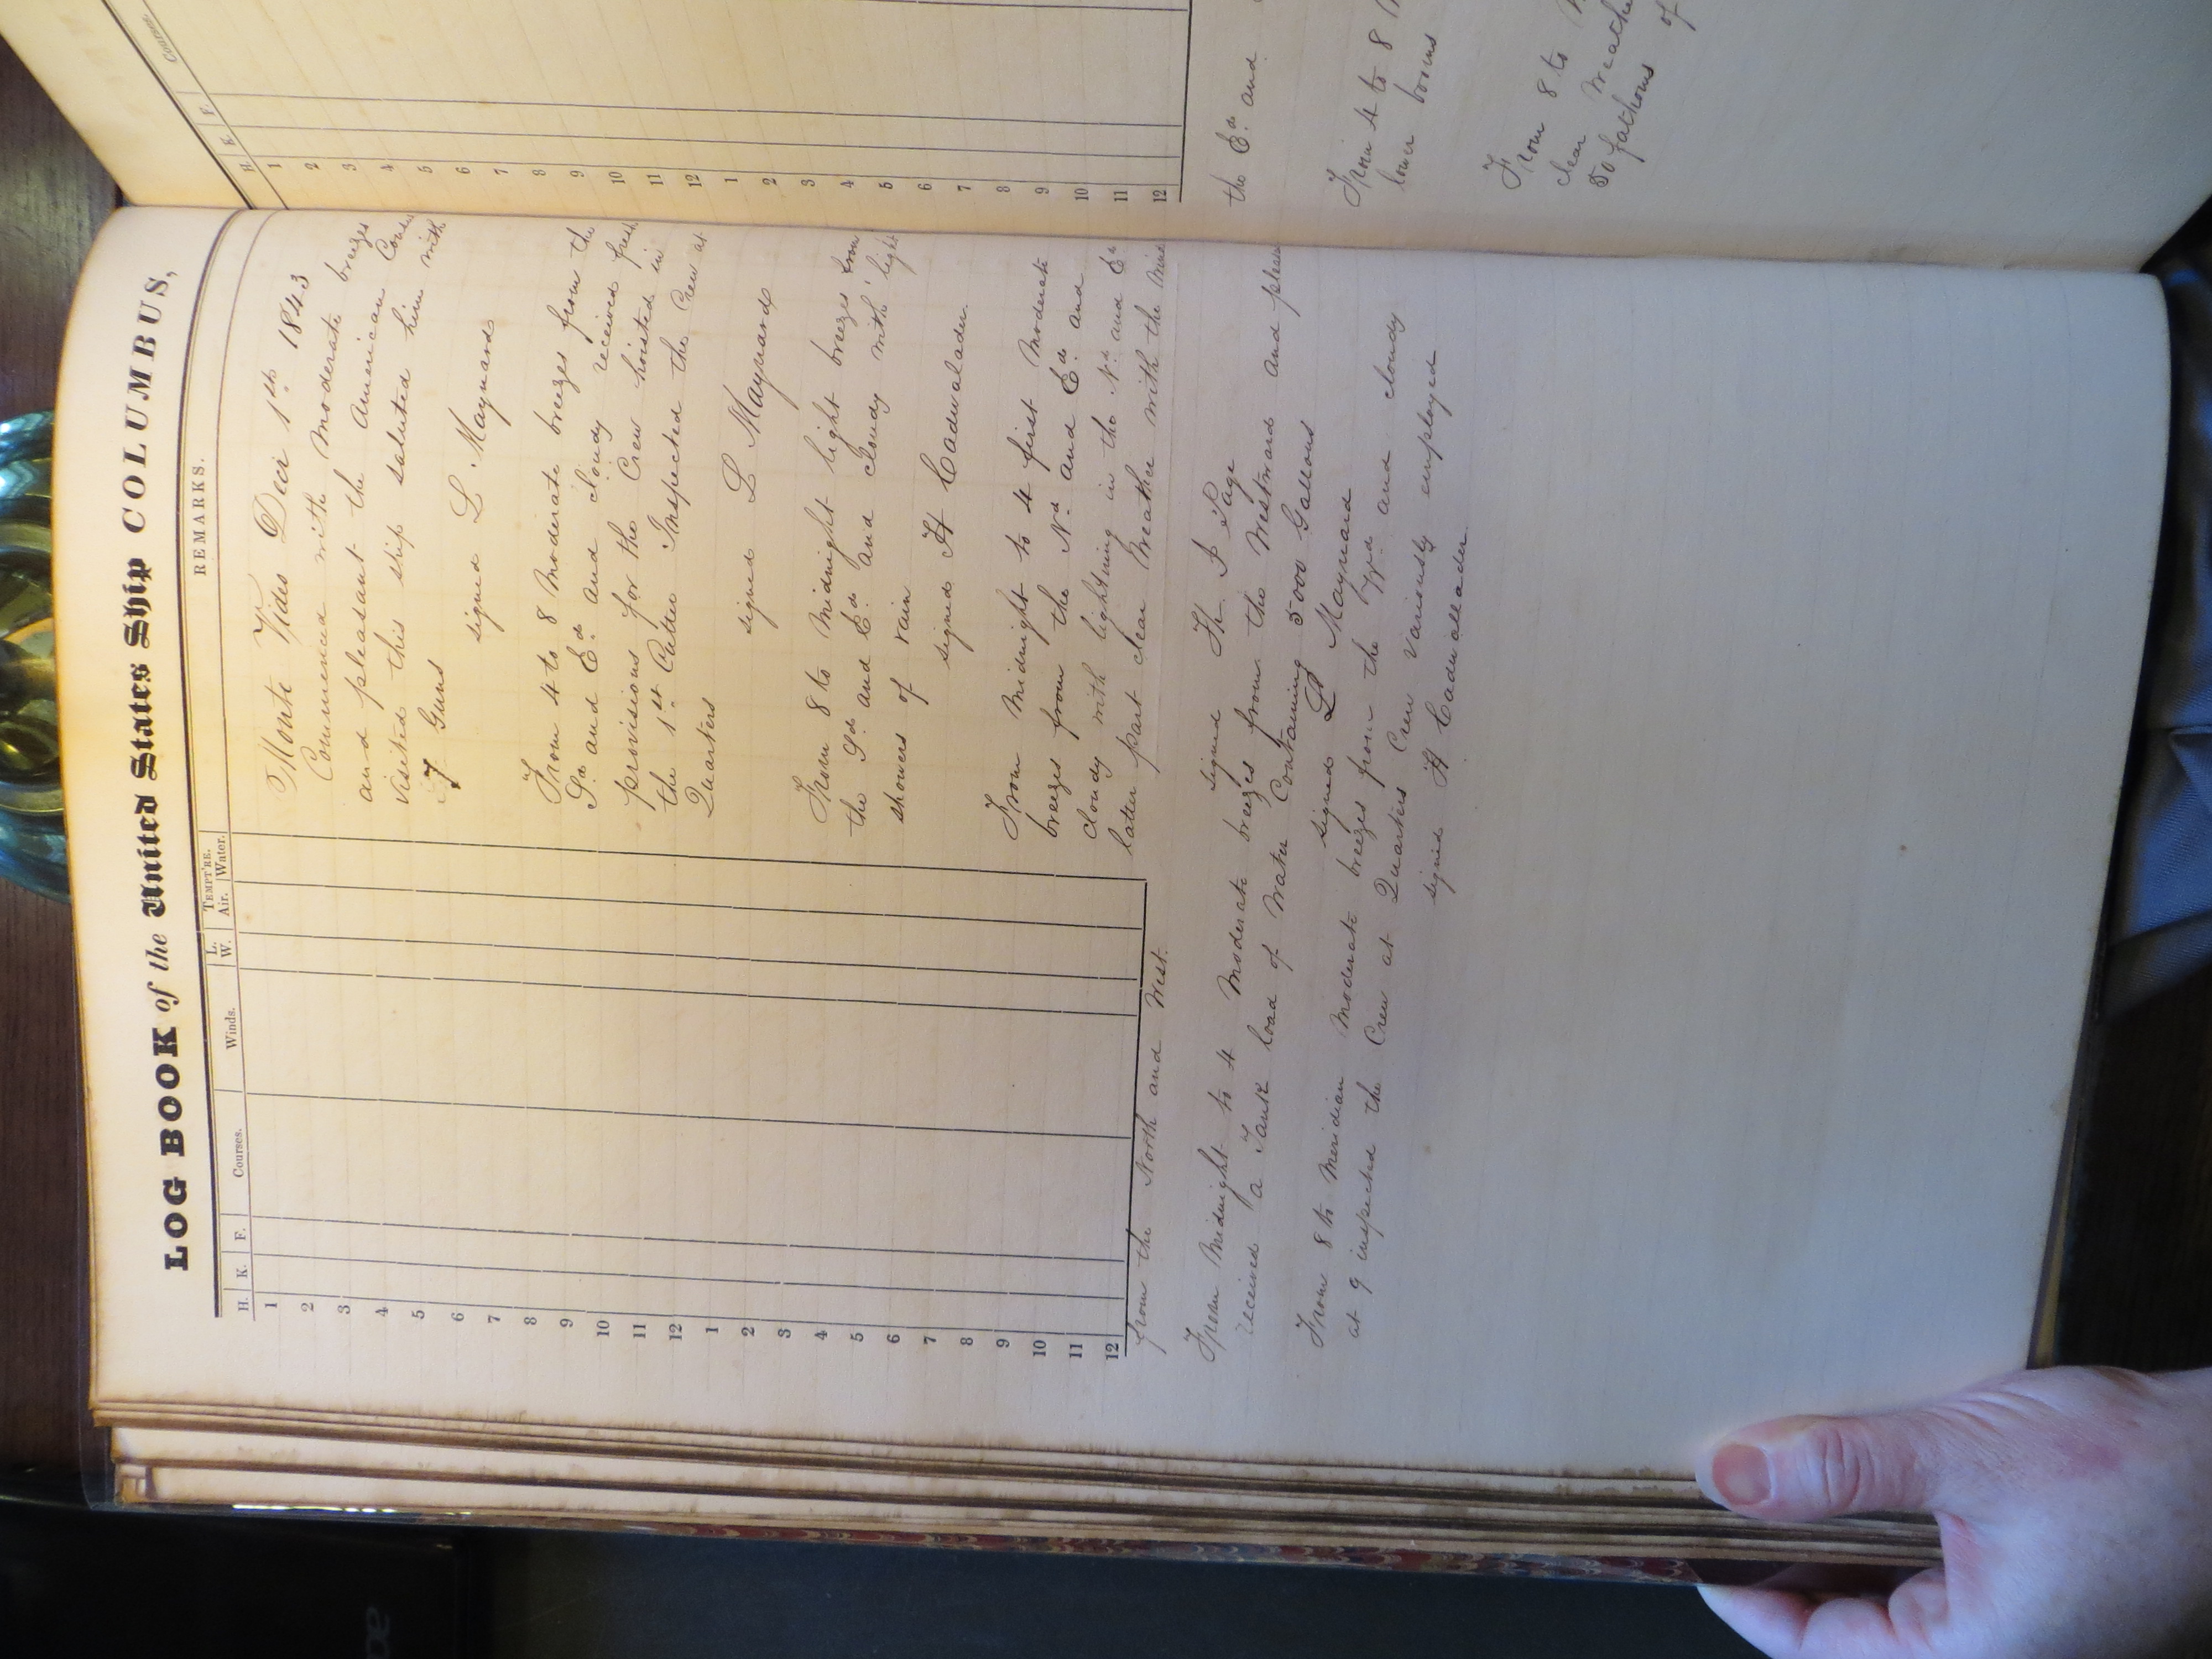 LOG BOOK of the United States Ship COLUMBUS,
H. K. F. Courses. Winds. L. W. TEMPT'RE. Air. Water. REMARKS.
1
2
3
4
5
6
7
8
9
10
11
12
1
2
3
4
5
6
7
8
9
10
11
12
Monte Video Decr 1st 1843
Commenced with moderate breezes
and pleasant the American
visited this ship saluted him with
7 Guns
signed L Maynard
From 4 to 8 Moderate breezes from the
Sd and Ed and cloudy received fresh
provisions for the Crew hoisted in
the 1st Cutter Inspected the Crew at
Quarters
signed L Maynard
From 8 to Midnight light breezes from
the Sd and Ed and cloudy with light
showers of rain
signed H Cadwalader
From Midnight to 4 first Moderate
breezes from the Nd and Ed and
cloudy with lightning in the Nd and Ed
latter part clear Weather with the Wind
from the North and West.
signed Th. J Page
From Midnight to 4 Moderate breezes from the Westward and
received a Tank load of Water Containing 5000 Gallons
signed L Maynard
From 8 to Meridian Moderate breezes from the Wd and cloudy
at 9 inspected the Crew at Quarters Crew variously employed
signed H Cadwallader
H. K. F. Courses.
1
2
3
4
5
6
7
8
9
10
11
12
1
2
3
4
5
6
7
8
9
10
11
12
the Ed and
From 4 to 8
lower booms
From 8 to
clear
50 fathoms of